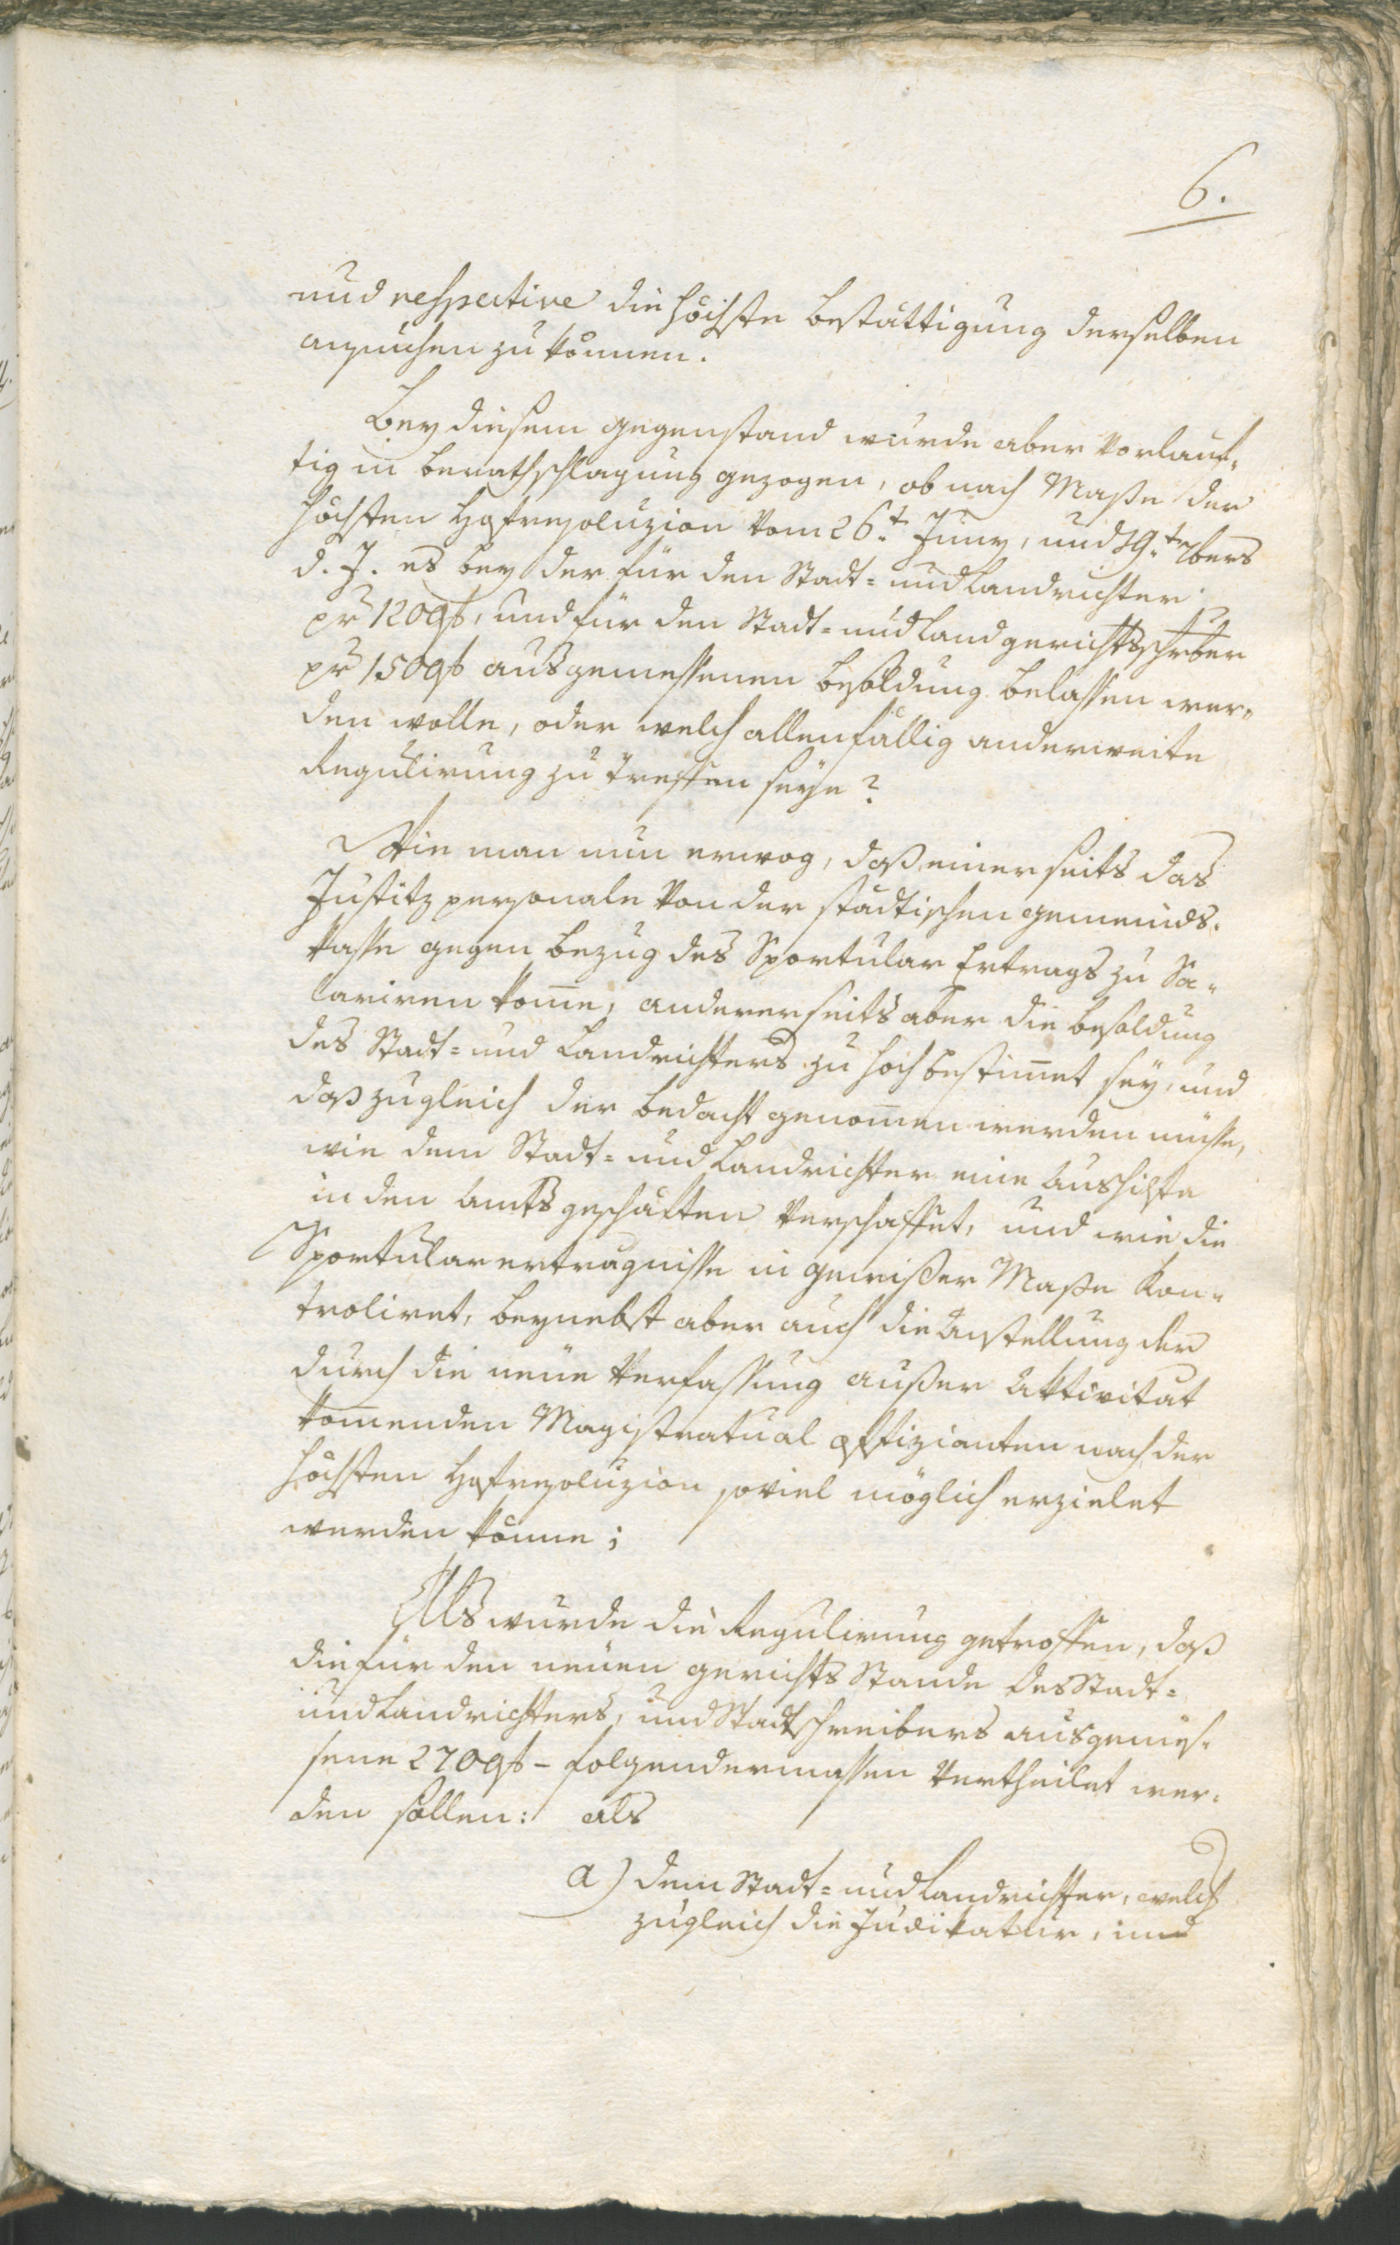 6.
und respective die höchste Bestättigung derselben
ansuchen zu können.
Bey diesem Gegenstand wurde aber vorläuf-
tig in Berathschlagung gezogen, ob nach Maße der
höchsten Hofresoluzion vom 26.t Juny, und 19.t 7bers
d. J. es bey der für den Stadt- und Landrichter
pr 1200f, und für den Stadt- und Landgerichtsschreiber
pr 1500f ausgemessenen Besoldung belassen wer-
den wolle, oder welch allenfällig anderweite
Regulirung zu treffen seÿe?
Wie man nun erwog, daß einerseits das
Justitzpersonale von der städtischen Gemeinds-
kasse gegen Bezug des Sportular Ertrags zu Sa-
lariren kom̄e, andererseits aber die Besoldung
des Stadt- und Landrichters zu hoch bestim̄et seÿ, und
daß zugleich der Bedacht genom̄en werden müsse,
wie dem Stadt- und Landrichter eine Aushilfte
in den Amtsgeschäften verschaffet, und wie die
Sportularerträgnisse in gewißer Maße Kon-
troliret, beynebst aber auch die Anstellung der
durch die neue Verfassung außer Aktivität
kom̄enden Magistratual Offizianten nach der
höchsten Hofresoluzion soviel möglich erzielet
werden könne;
Als wurde die Regulirung getroffen, daß
die für den neuen Gerichts Stande des Stadt-
und Landrichters, und Stadtschreibers ausgemes-
sene 2700f – folgendermassen vertheilet wer-
den sollen: als
a) dem Stadt- und Landrichter, welch
zugleich die Judikatur, und